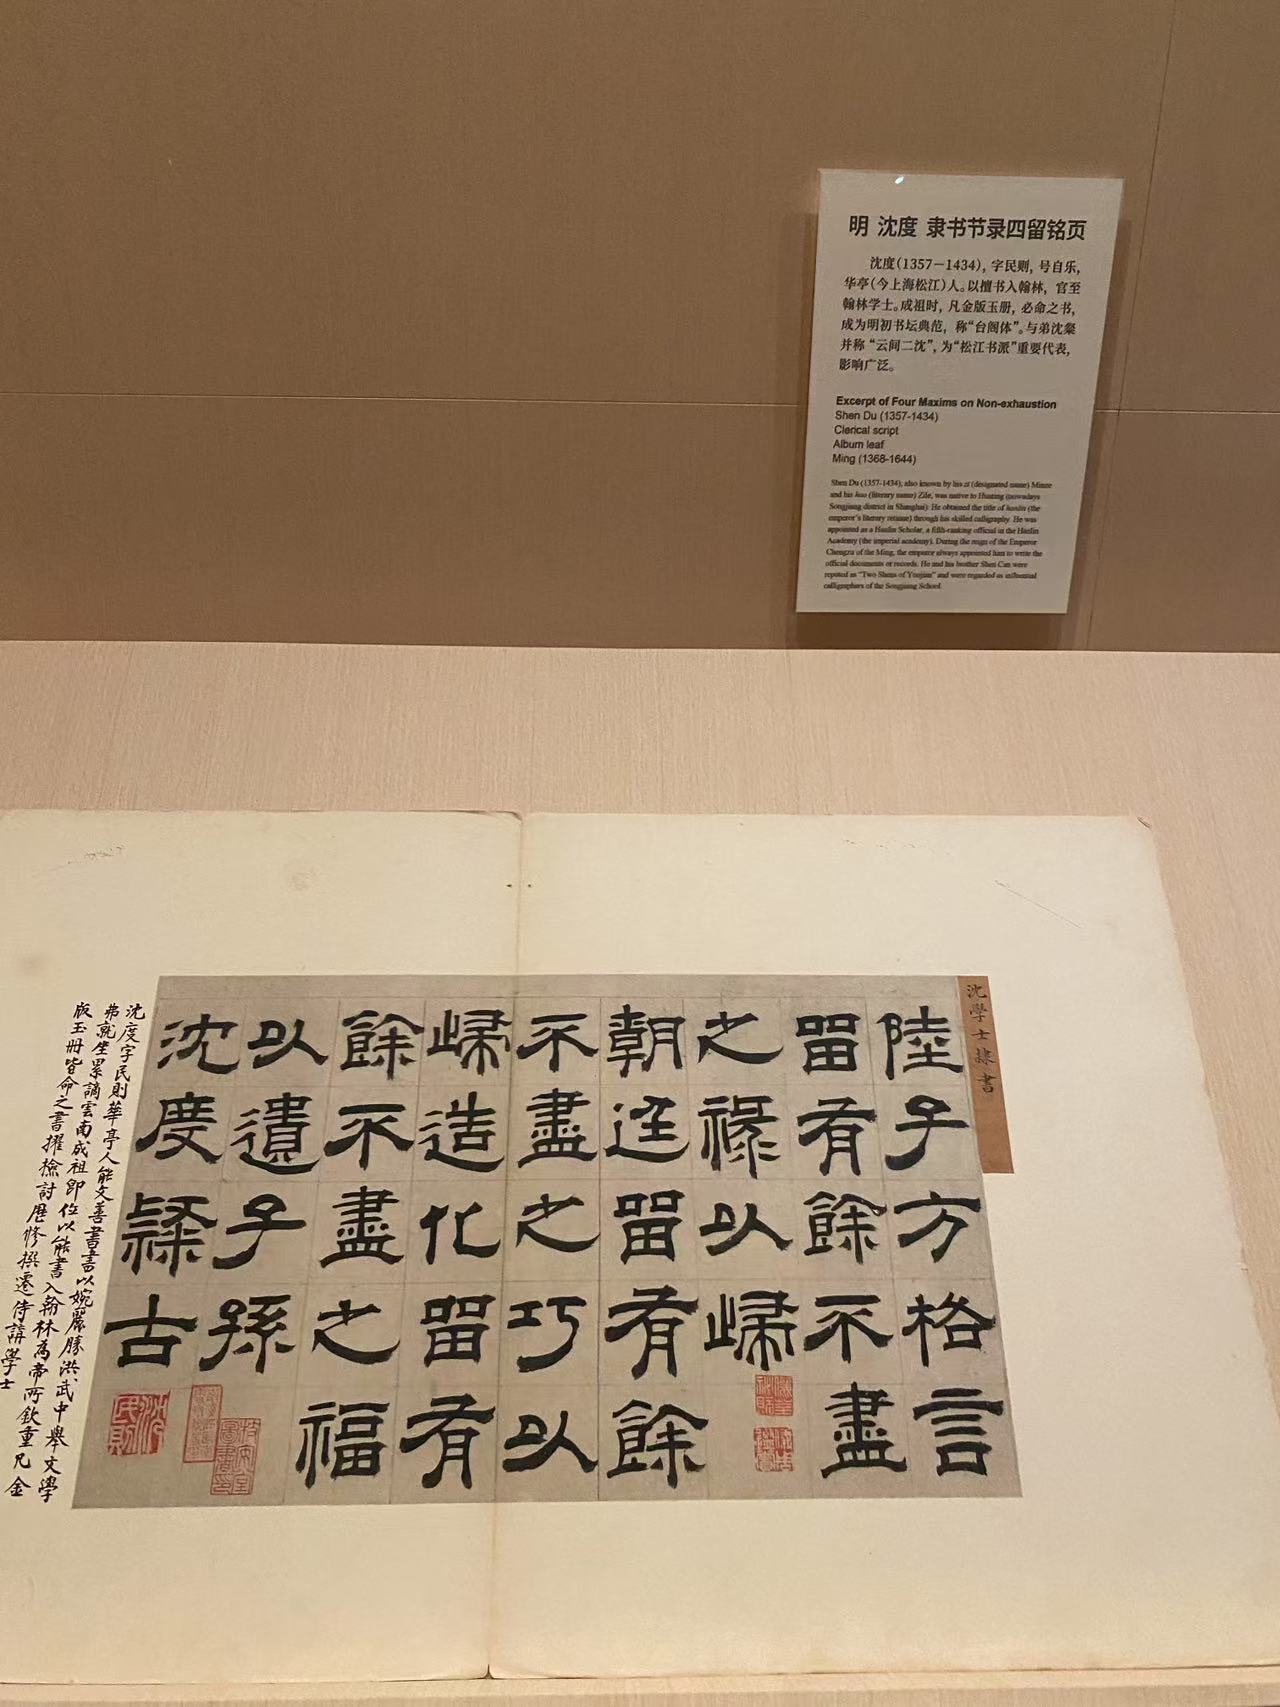 明 沈度 隶书节录四留铭页
沈度(1357－1434)，字民则，号自乐，
华亭(今上海松江)人。以擅书入翰林，官至
翰林学士。成祖时，凡金版玉册，必命之书，
成为明初书坛典范，称“台阁体”。与弟沈粲
并称“云间二沈”，为“松江书派”重要代表，
影响广泛。
Excerpt of Four Maxims on Non-exhaustion
Shen Du (1357-1434)
Clerical script
Album leaf
Ming (1368-1644)
Shen Du (1357-1434), also known by his zi (designated name) Minze
and his hao (literary name) Zile, was native to Huating (nowadays
Songjiang district in Shanghai). He obtained the title of hanlin (the
emperor's literary retinue) through his skilled calligraphy. He was
appointed as a Hanlin Scholar, a fifth-ranking official in the Hanlin
Academy (the imperial academy). During the reign of the Emperor
Chengzu of the Ming, the emperor always appointed him to write the
official documents or records. He and his brother Shen Can were
reputed as "Two Shens of Yunjian" and were regarded as influential
calligraphers of the Songjiang School.
沈學士隸書
陸子方格言
留有餘不盡
之祿以歸
朝廷留有餘
不盡之巧以
歸造化留有
餘不盡之福
以遺子孫
沈度隸古
沈度字民則華亭人能文善書書以婉麗勝洪武中舉文學
弗就坐累謫雲南成祖即位以能書入翰林為帝所欽重凡金
版玉冊皆命之書擢檢討歷修撰遷侍講學士
沈民則